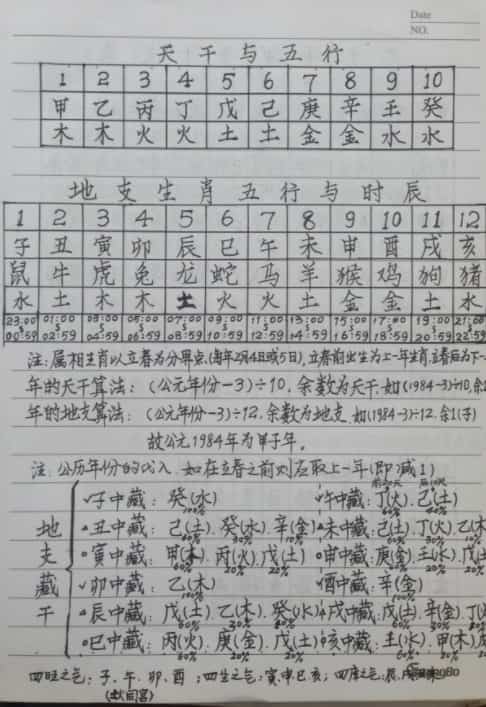 Date
NO.
天干与五行
1 2 3 4 5 6 7 8 9 10
甲 乙 丙 丁 戊 己 庚 辛 壬 癸
木 木 火 火 土 土 金 金 水 水
地支生肖五行与时辰
1 2 3 4 5 6 7 8 9 10 11 12
子 丑 寅 卯 辰 巳 午 未 申 酉 戌 亥
鼠 牛 虎 兔 龙 蛇 马 羊 猴 鸡 狗 猪
水 土 木 木 土 火 火 土 金 金 土 水
23:00 01:00 03:00 05:00 07:00 09:00 11:00 13:00 15:00 17:00 19:00 21:00
00:59 02:59 04:59 06:59 08:59 10:59 12:59 14:59 16:59 18:59 20:59 22:59
注:属相生肖以立春为分界点(每年2月4日或5日),立春前出生为上一年生肖,立春后为下一
年的天干算法:(公元年份-3)÷10,余数为天干,如(1984-3)÷10,余1
年的地支算法:(公元年份-3)÷12,余数为地支,如(1984-3)÷12,余1(子)
故公元1984年为甲子年。
注:公历年份的代入,如在立春之前则应取上一年(即减1)
地支藏干
子中藏:癸(水) 100% 午中藏:丁(火)、己(土)
丑中藏:己(土)、癸(水)、辛(金) 未中藏:己(土)、丁(火)、乙(木
寅中藏:甲(木)、丙(火)、戊(土) 申中藏:庚(金)、壬(水)、戊(土
卯中藏:乙(木) 100% 酉中藏:辛(金) 100%
辰中藏:戊(土)、乙(木)、癸(水) 戌中藏:戊(土)、辛(金)、丁(
巳中藏:丙(火)、庚(金)、戊(土) 亥中藏:壬(水)、甲(木)
四旺之气:子、午、卯、酉;四生之气:寅申巳亥;四库之气:辰